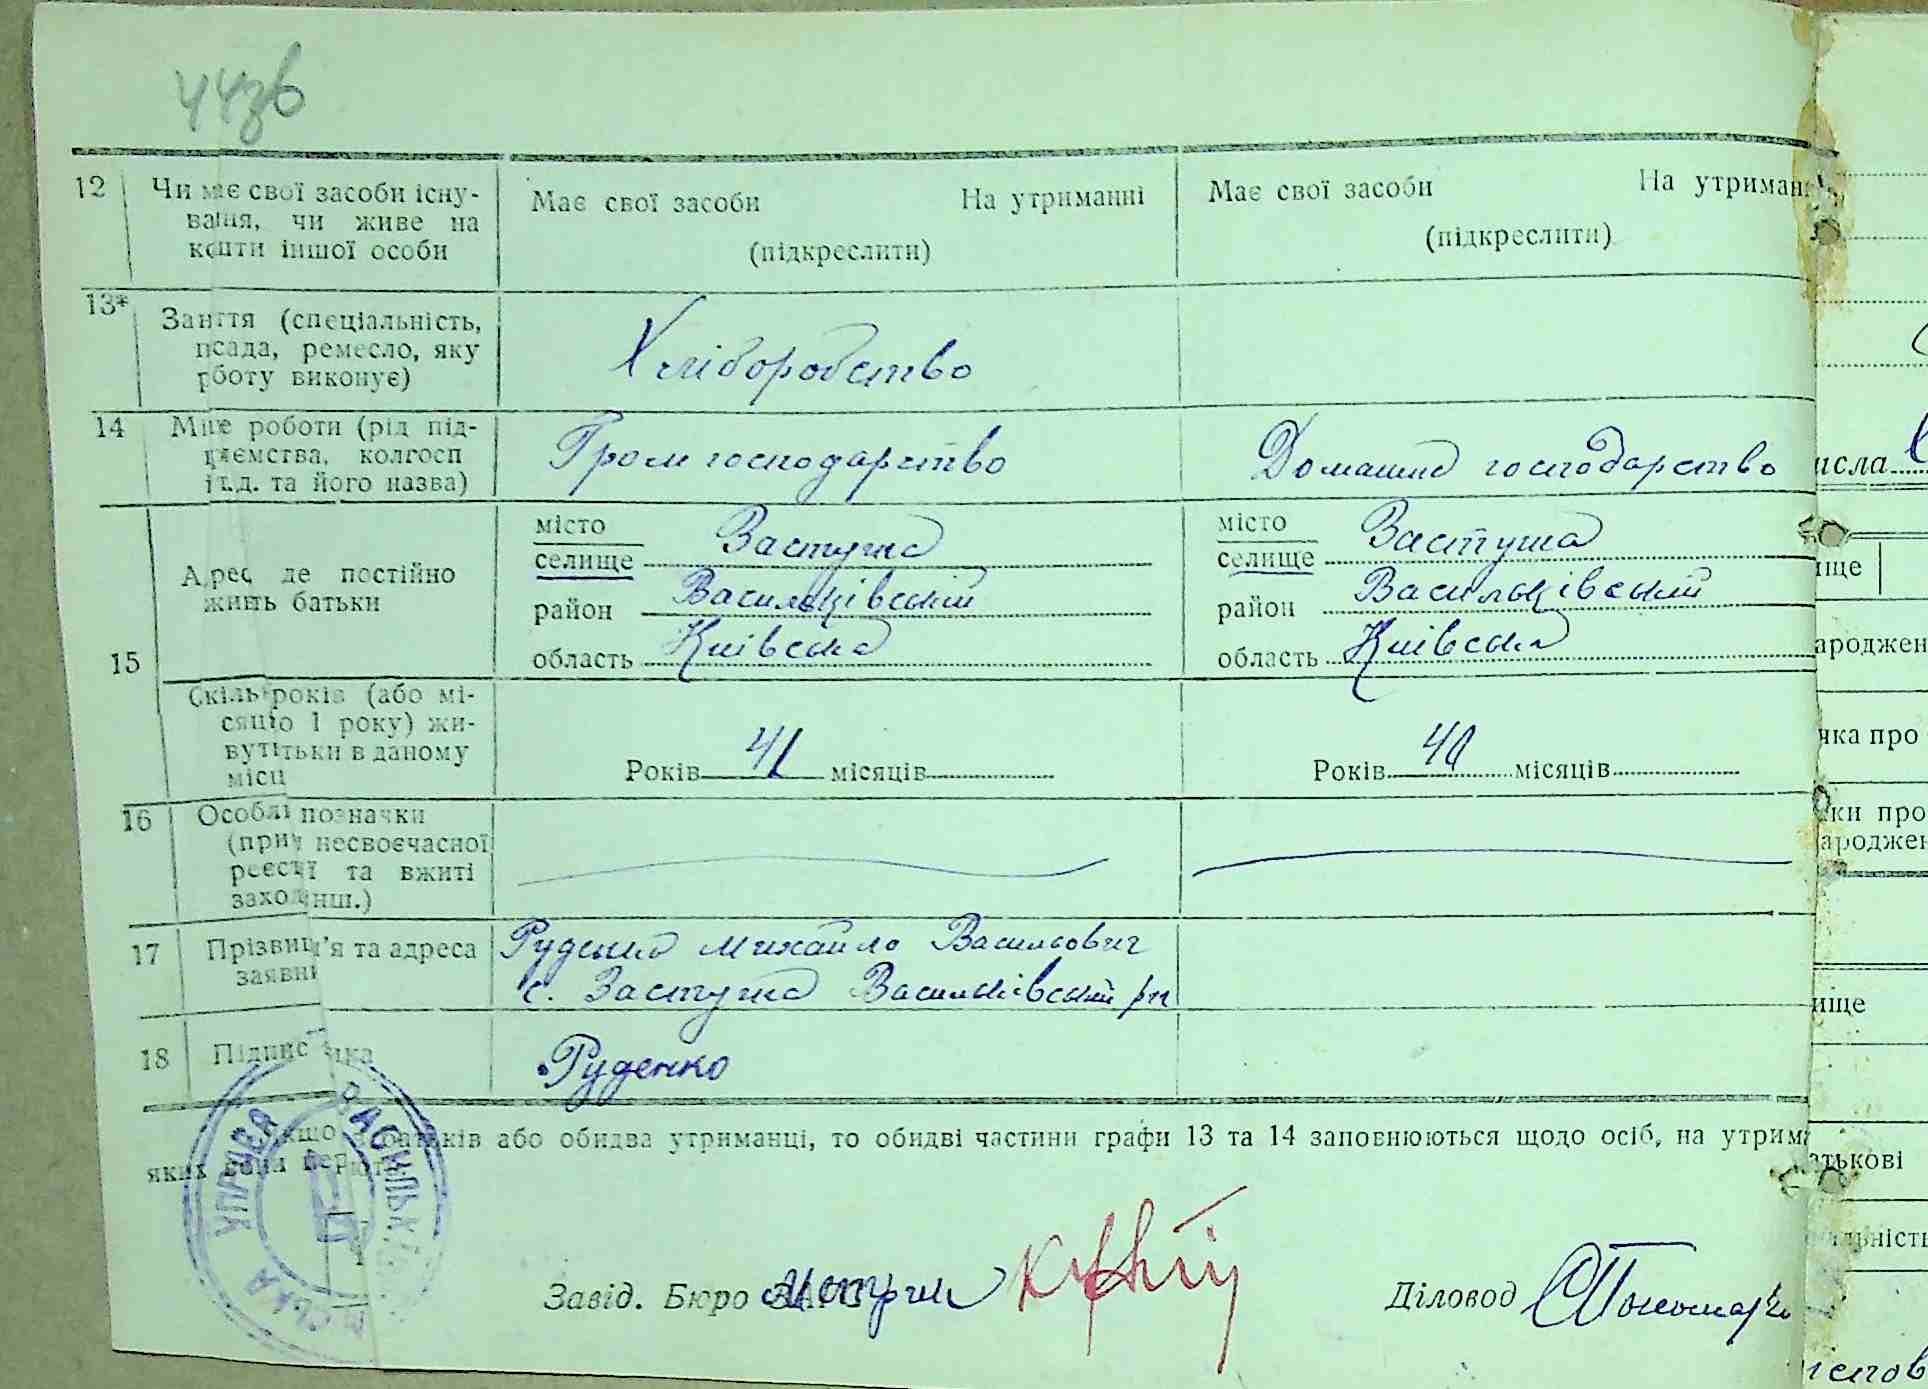 12 Чи має свої засоби існу-
вання, чи живе на
кошти іншої особи
Має свої засоби На утриманні
(підкреслити)
Має свої засоби На утриманні
(підкреслити)
13* Заняття (спеціальність,
посада, ремесло, яку
роботу виконує)
Хліборобство
14 Місце роботи (рід під-
приємства, колгосп
і т.д. та його назва)
Гром господарство
Домашнє господарство
15 Адреса, де постійно
живуть батьки
місто
селище Застугна
район Васильківський
область Київська
місто
селище Застугна
район Васильківський
область Київська
15
Скільки років (або мі-
сяців до 1 року) жи-
вуть батьки в даному
місці
Років 41 місяців
Років 40 місяців
16 Особливі позначки
(при несвоєчасної
реєстрації та вжиті
заходи інш.)
17 Прізвище, ім'я та адреса
заявника
Руденко Михайло Васильович
с. Застугна Васильківський р-н
18 Підпис заявника
Руденко
Якщо з батьків або обидва утриманці, то обидві частини графи 13 та 14 заповнюються щодо осіб, на утрим
яких вони перебувають
УПРАВА ВАСИЛЬК СЬКА
Завід. Бюро ЗАГС
Діловод
исла
ище
ароджен
чка про
ки про
ароджен
ище
атькові